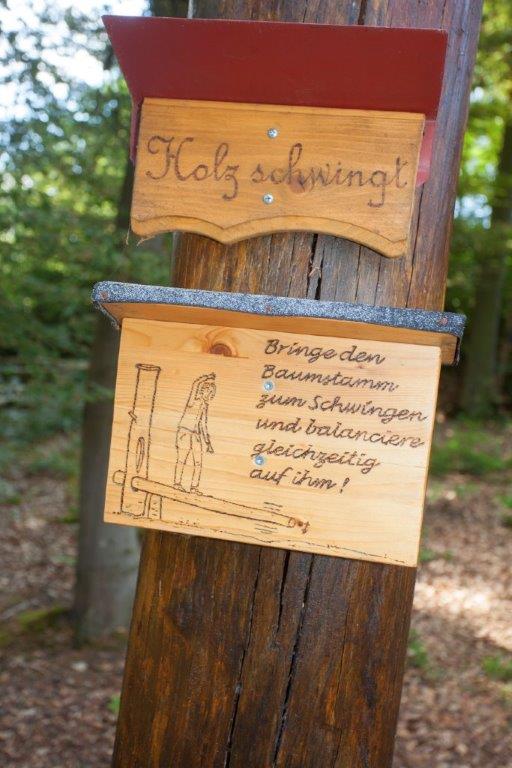 Holz schwingt
Bringe den
Baumstamm
zum Schwingen
und balanciere
gleichzeitig
auf ihm!